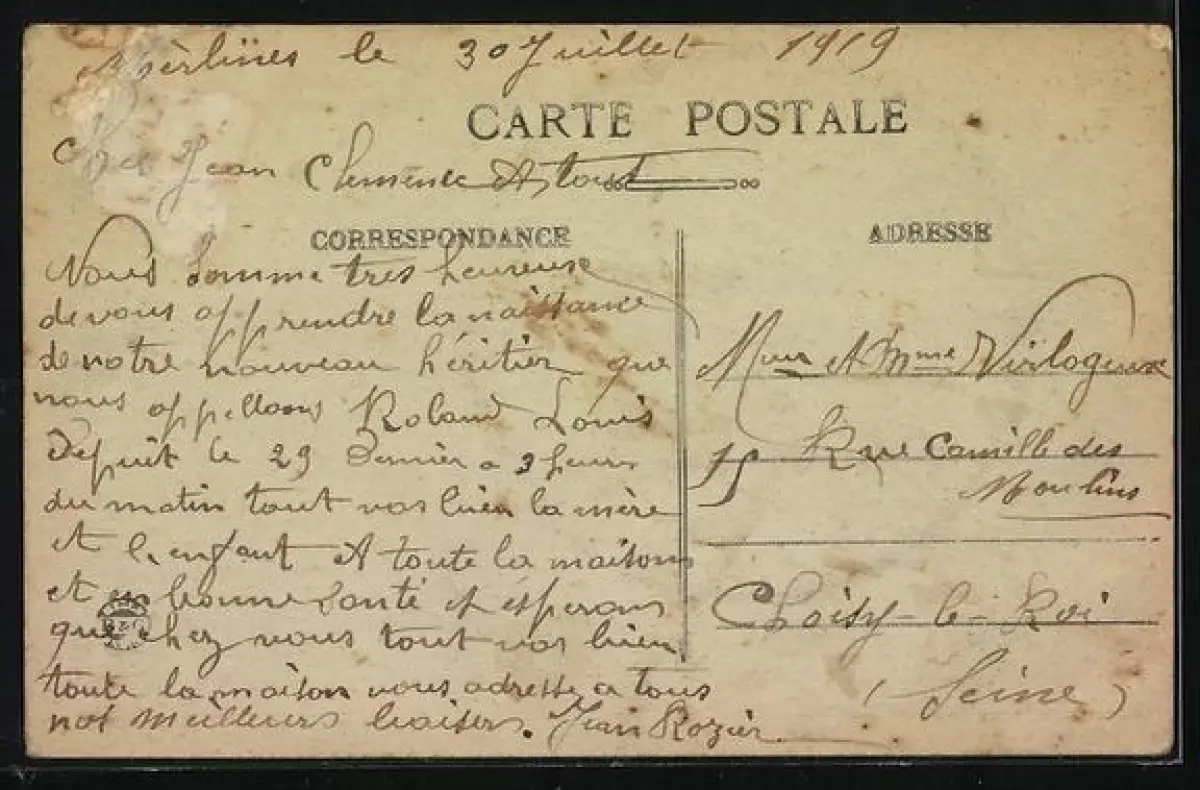 Merlines le 30 Juillet 1919
CARTE POSTALE
Jean Clemence A tous
CORRESPONDANCE
ADRESSE
Nous somme tres heureuse
de vous apprendre la naissance
de notre nouveau héritier que
nous appellons Roland Louis
Depuit le 29 Dernier a 3 heures
du matin tout vas bien la mère
et l'enfant A toute la maisons
et en bonne santé et esperons
que chez vous tout vas bien
toute la maison vous adresse a tous
nos meilleurs baisers. Jean Rozier
et Mme Virlogeux
15 Rue Camille des
Moulins
Choisy-le-Roi
(Seine)